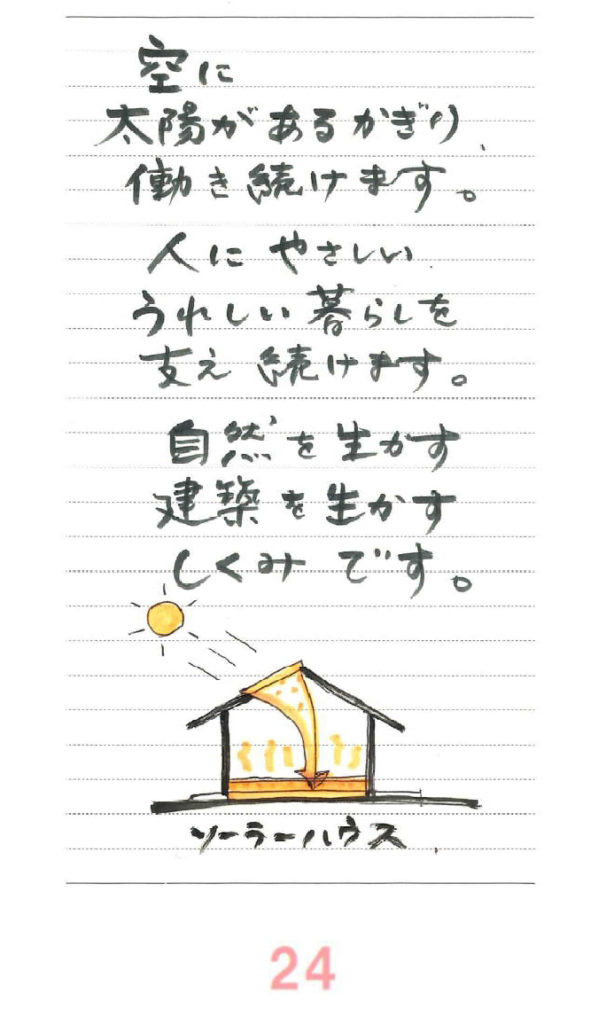 空に
太陽があるかぎり
働き続けます。
人にやさしい
うれしい暮らしを
支え続けます。
自然を生かす
建築を生かす
しくみです。
ソーラーハウス
24